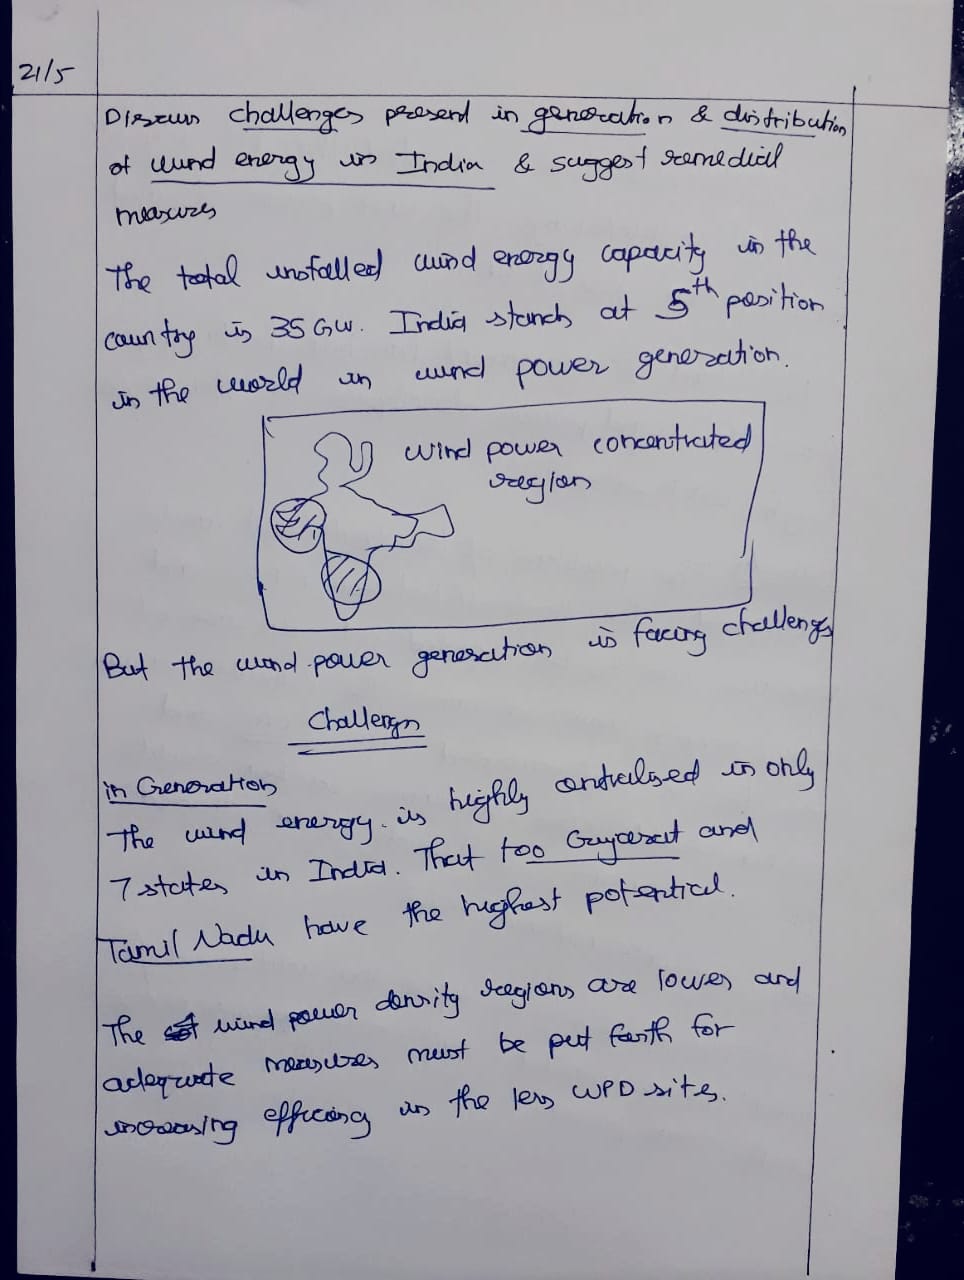 21/5
Discuss challenges present in generation & distribution
of wind energy in India & suggest remedial
measures
The total installed wind energy capacity in the
country is 35 GW. India stands at 5th position
in the world in wind power generation.
wind power concentrated
region
But the wind power generation is facing challenges
Challenges
in Generation
The wind energy is highly centralised in only
7 states in India. That too Gujarat and
Tamil Nadu have the highest potential.
The wind power density regions are lower and
adequate measures must be put forth for
increasing efficiency in the less WPD sites.